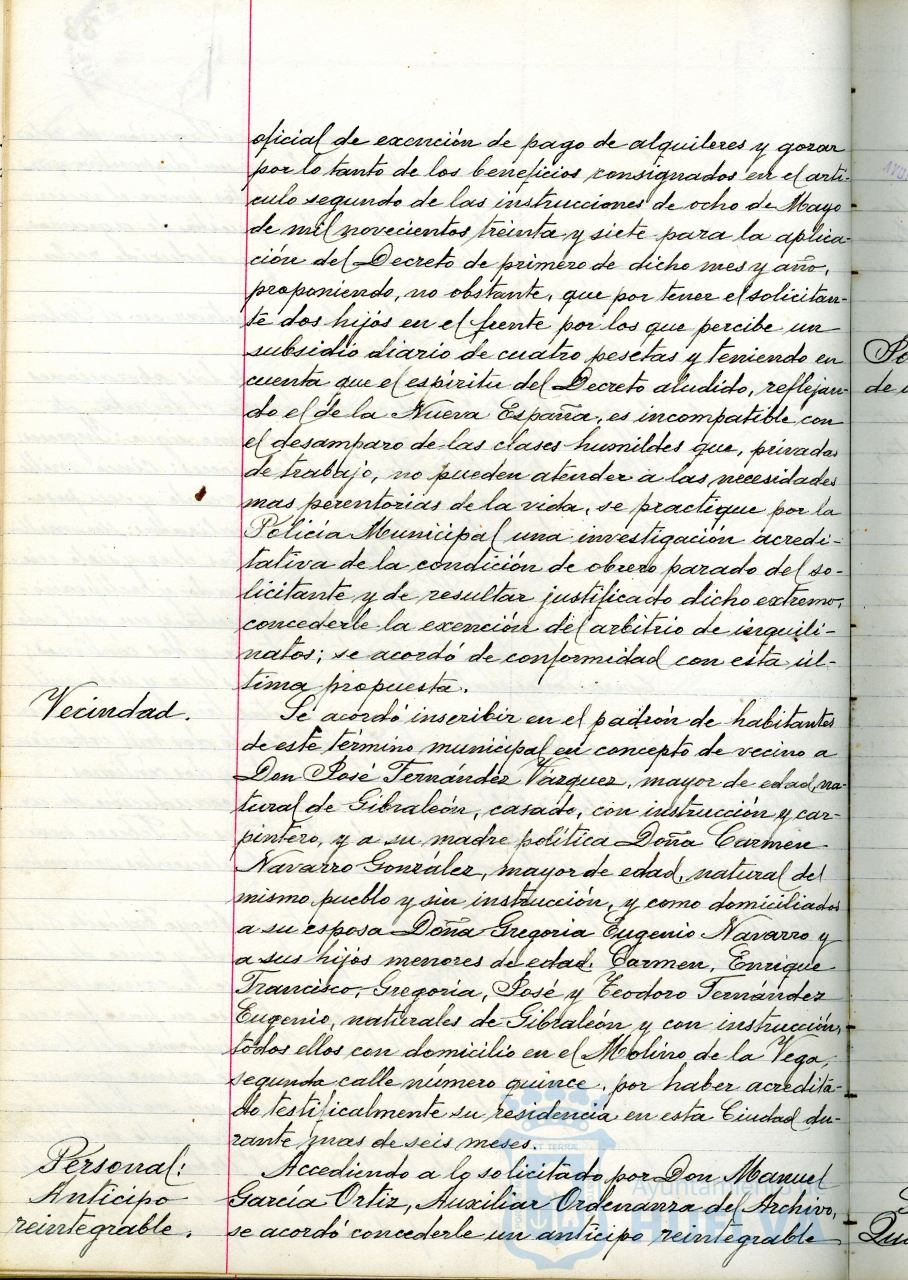 oficial de exención de pago de alquileres y gozar
por lo tanto de los beneficios consignados en el artí-
culo segundo de las instrucciones de ocho de Mayo
de mil novecientos treinta y siete para la aplica-
ción del Decreto de primero de dicho mes y año,
proponiendo, no obstante, que por tener el solicitan-
te dos hijos en el frente por los que percibe un
subsidio diario de cuatro pesetas y teniendo en
cuenta que el espíritu del Decreto aludido, reflejan-
do el de la Nueva España, es incompatible con
el desamparo de las clases humildes que, privadas
de trabajo, no pueden atender a las necesidades
mas perentorias de la vida, se practique por la
Policía Municipal una investigación acredi-
tativa de la condición de obrero parado del so-
licitante y de resultar justificado dicho extremo,
concederle la exención del arbitrio de inquili-
natos; se acordó de conformidad con esta úl-
tima propuesta.
Vecindad.
Se acordó inscribir en el padrón de habitantes
de este término municipal en concepto de vecino a
Don José Fernández Vázquez, mayor de edad, na-
tural de Gibraleón, casado, con instrucción y car-
pintero, y a su madre política Doña Carmen
Navarro González, mayor de edad, natural del
mismo pueblo y sin instrucción, y como domiciliados
a su esposa Doña Gregoria Eugenio Navarro y
a sus hijos menores de edad, Carmen, Enrique
Francisco, Gregoria, José y Teodoro Fernández
Eugenio, naturales de Gibraleón y con instrucción,
todos ellos con domicilio en el Molino de la Vega,
segunda calle número quince, por haber acredita-
do testificalmente su residencia en esta Ciudad du-
rante mas de seis meses.
Personal:
Anticipo
reintegrable.
Accediendo a lo solicitado por Don Manuel
García Ortiz, Auxiliar Ordenanza del Archivo,
se acordó concederle un anticipo reintegrable
Ayuntamiento de
HUELVA